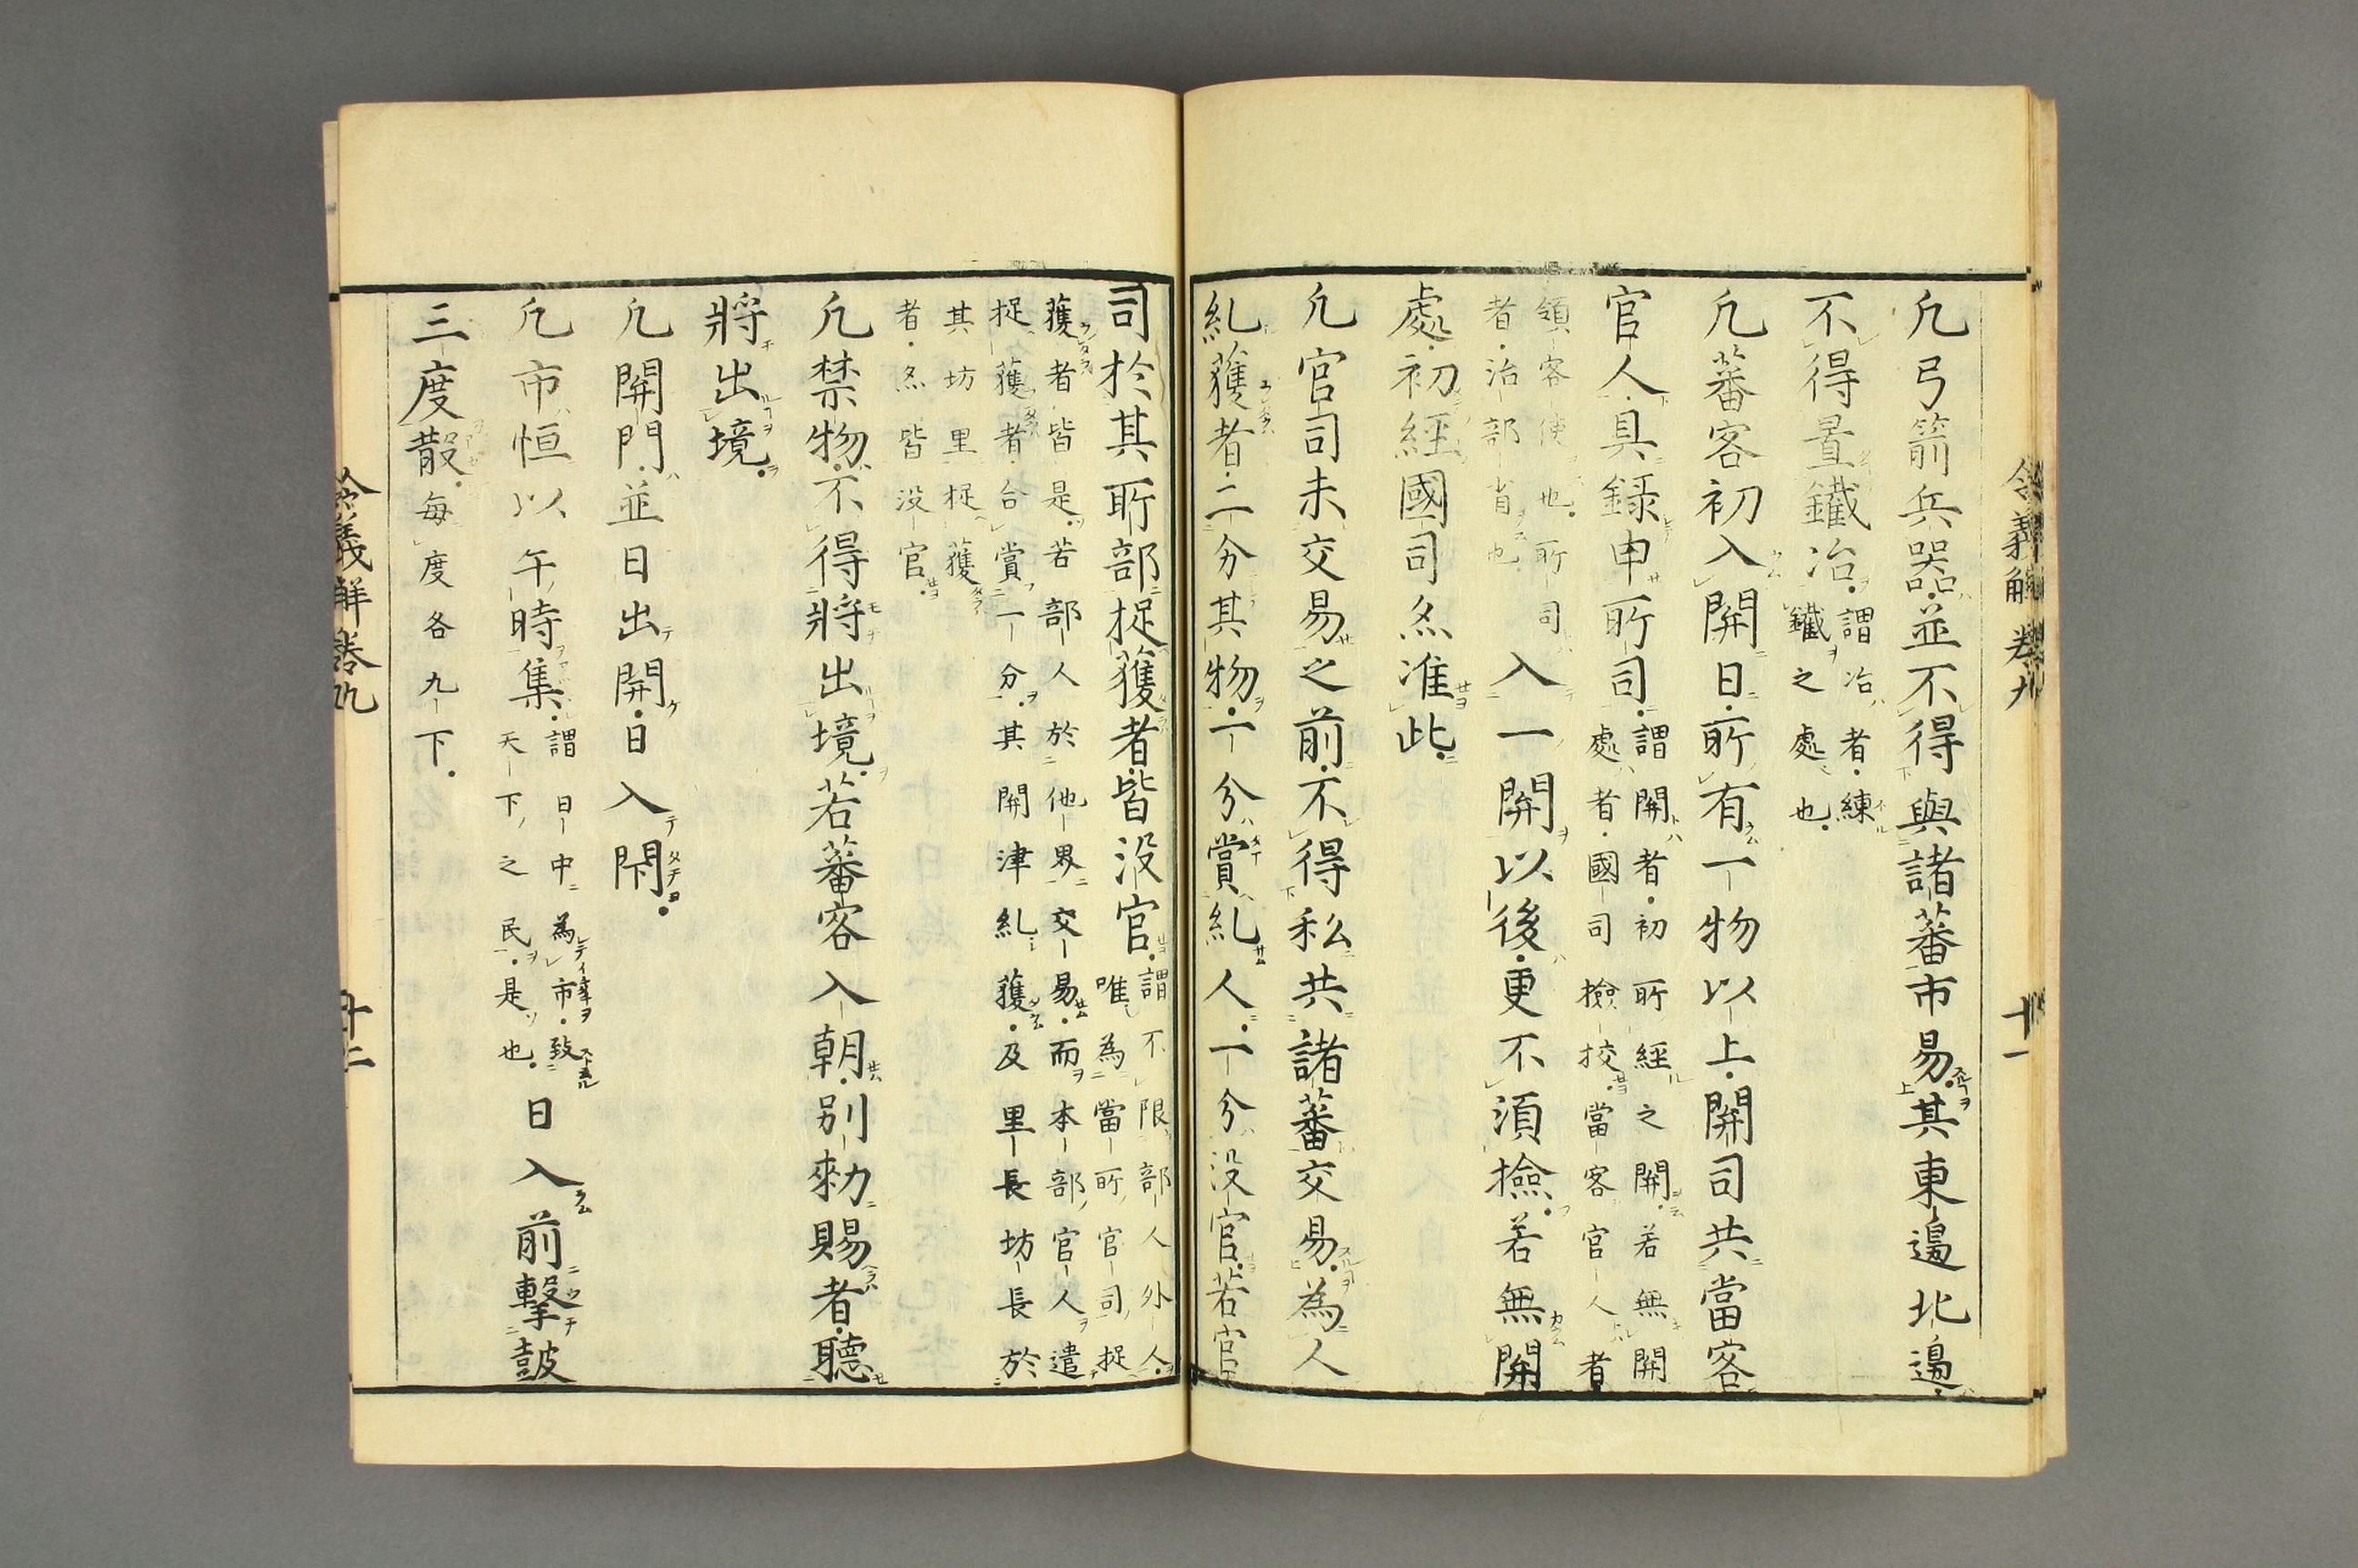 令義解卷九
十一
凢弓箭兵器並不得與諸蕃市易其東邊北邊
不得置鐵冶謂冶者練
鐵之處也
凢蕃客初入關日所有一物以上關司共當客
官人具録申所司謂關者初所經之關若無關
處者國司撿挍當客官人者
領客使也所司
者治部省也入一關以後更不須撿若無關
處初經國司亦准此
凢官司未交易之前不得私共諸蕃交易為人
糺獲者二分其物一分賞糺人一分没官若官
司於其所部捉獲者皆没官謂不限部人外人
唯為當所官司捉
獲者皆是若部人於他界交易而本部官人遣
捉獲者合賞一分其關津糺獲及里長坊長於
其坊里捉獲
者亦皆没官
凢禁物不得將出境若蕃客入朝别勑賜者聽
將出境
凢關門並日出開日入閇
凢市恒以午時集謂日中為市致
天下之民是也日入前擊皷
三度散每度各九下
令義解卷九
十二